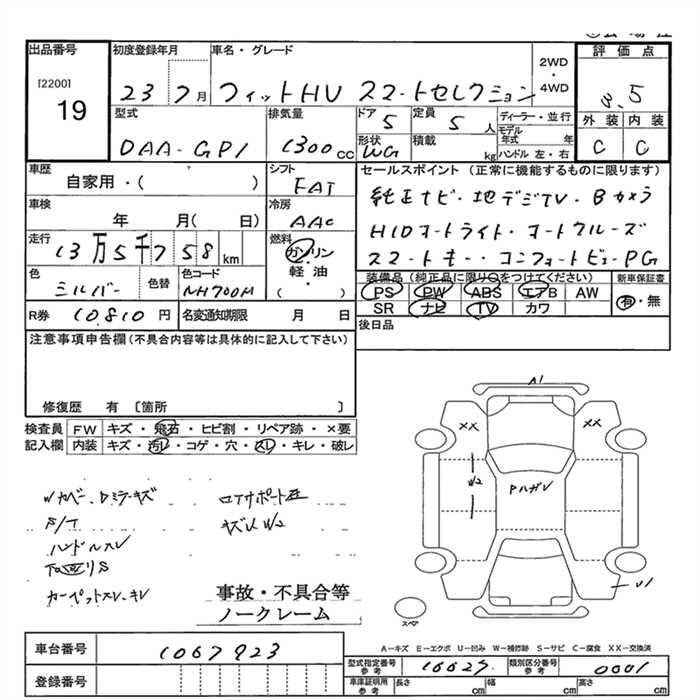 出品番号 初度登録年月 車名・グレード 2WD・4WD 評価点
[2200]
19
23 7月 フィットHV スマートセレクション 3.5
型式 排気量 ドア 定員 ディーラー・並行 外装 内装
DAA-GP1 1300cc 5 5人 モデル年式 年 C C
形状 積載 kg ハンドル 左・右
WG
車歴 シフト セールスポイント(正常に機能するものに限ります)
自家用・( ) FAT 純正ナビ・地デジTV・Bカメラ
車検 冷房 HIDオートライト・オートクルーズ
年 月( 日) AAC スマートキー・コンフォートビューPG
走行 燃料
13万5千758km ガソリン・軽油・( )
色 色替 色コード 装備品(純正品に限り○をつけてください) 新車保証書
シルバー NH700M PS PW ABS エアB AW 有・無
SR ナビ TV カワ
R券 10,810円 名変通知期限 月 日 後日品
注意事項申告欄(不具合内容等は具体的に記入して下さい)
修復歴 有 〔箇所 〕
検査員 FW キズ・飛石・ヒビ割・リペア跡・×要
記入欄 内装 キズ・汚レ・コゲ・穴・スレ・キレ・破レ
A1
XX XX
W2 FハガレU1
スペア
ロアサポート
キズU W2
S/T
ハンドルスレ
カーペットスレ・キレ
事故・不具合等
ノークレーム
A-キズ E-エクボ U-凹み W-補修跡 S-サビ C-腐食 XX-交換済
車台番号 1067923
型式指定番号 参考 16627 類別区分番号 参考 0001
登録番号
車庫証明用 参考 長さ cm 幅 cm 高さ cm